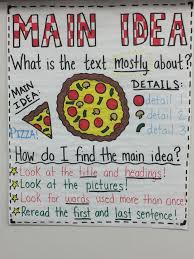 MAIN IDEA
What is the text mostly about?
MAIN IDEA
PIZZA!
DETAILS:
detail 1
detail 2
detail 3
How do I find the main idea?
Look at the title and headings!
Look at the pictures!
Look for words used more than once!
Reread the first and last sentence!